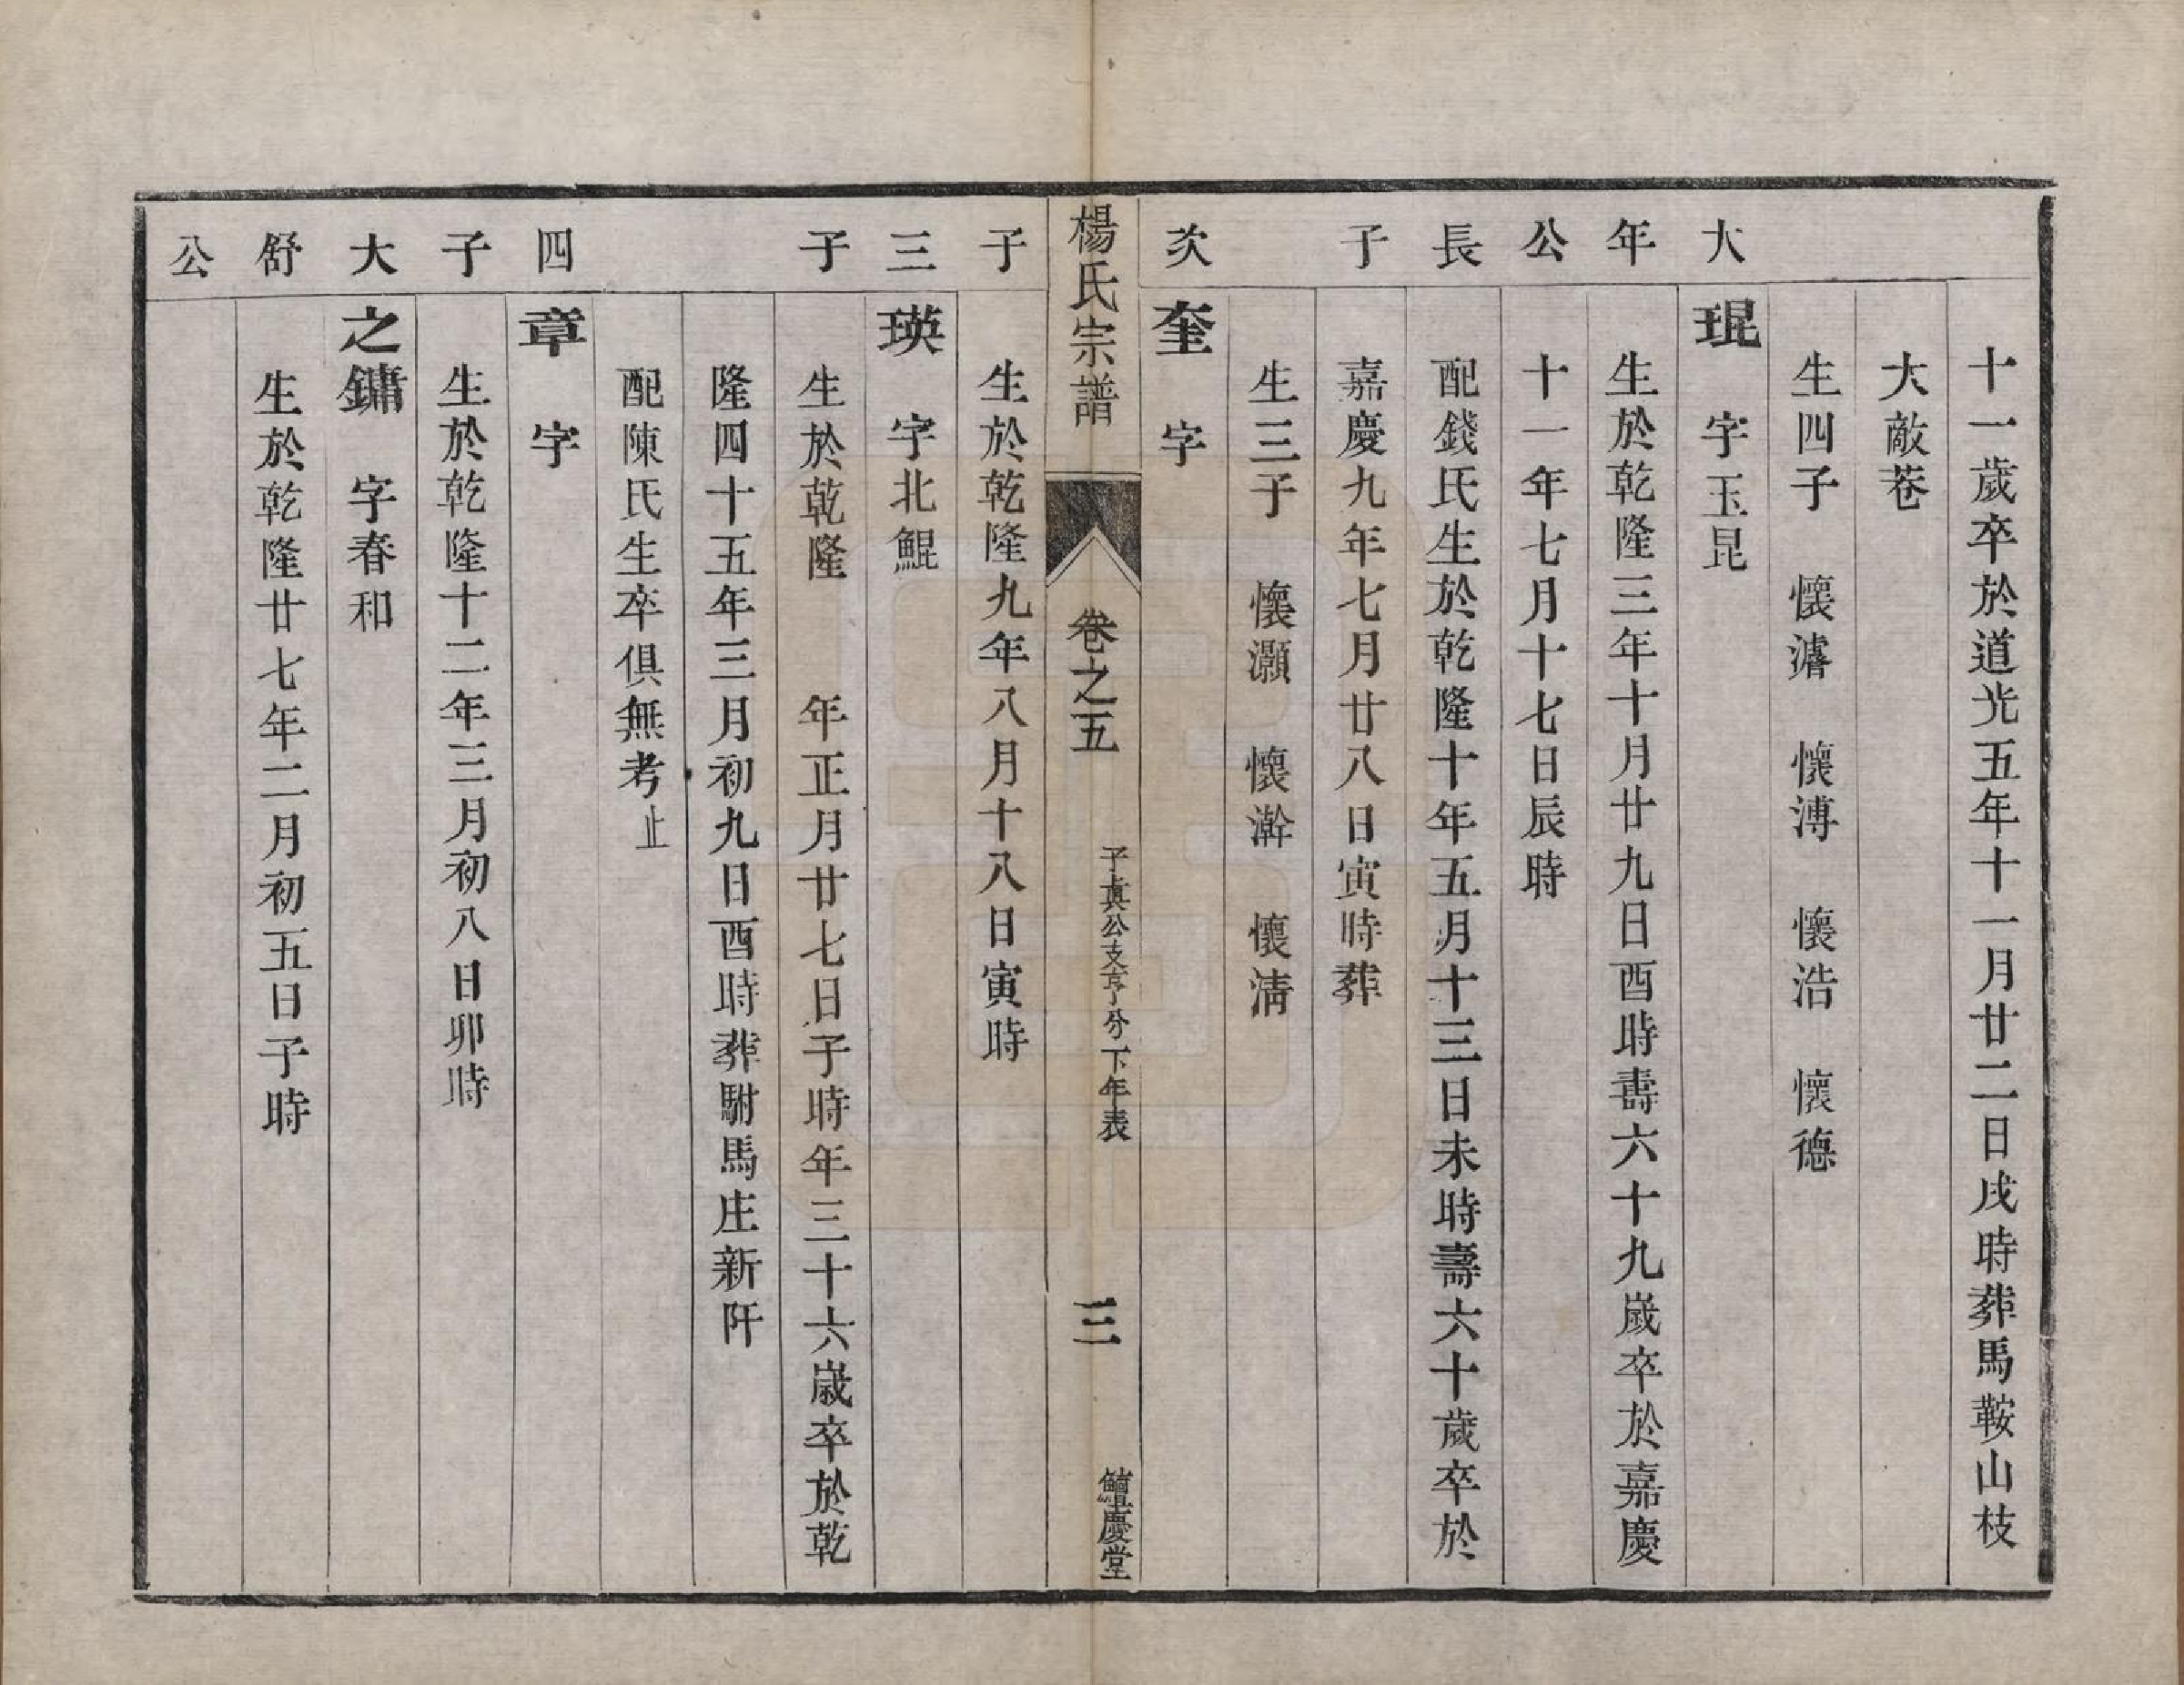 十一歲卒於道光五年十一月廿二日戌時葬馬鞍山枝
大敵巷
生四子　懷濬　懷溥　懷浩　懷德
大　琨　字玉昆
年　生於乾隆三年十月廿九日酉時壽六十九歲卒於嘉慶
公　十一年七月十七日辰時
長　配錢氏生於乾隆十年五月十三日未時壽六十歲卒於
子　嘉慶九年七月廿八日寅時葬
生三子　懷灝　懷澣　懷清
次　奎　字
楊氏宗譜　卷之五　子真公支亨分下年表　三　鱣慶堂
子　生於乾隆九年八月十八日寅時
三　瑛　字北鯤
子　生於乾隆　年正月廿七日子時年三十六歲卒於乾
隆四十五年三月初九日酉時葬駙馬庄新阡
配陳氏生卒俱無考止
四　章　字
子　生於乾隆十二年三月初八日卯時
大　之鏞　字春和
舒　生於乾隆廿七年二月初五日子時
公